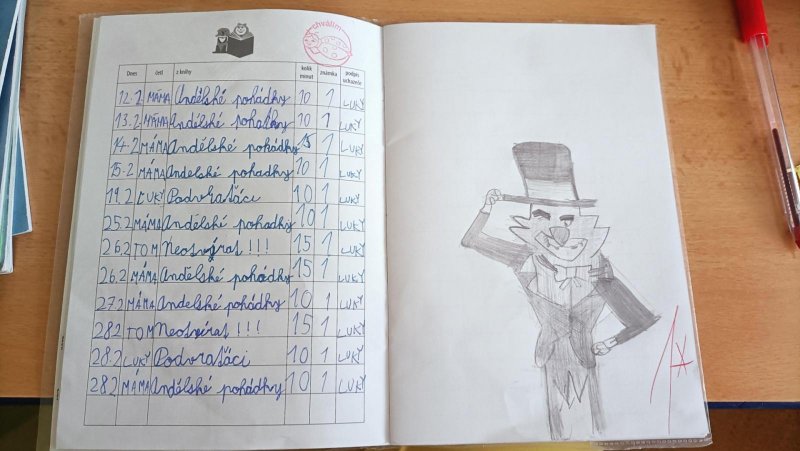 chválím
Dnes četl z knihy kolik minut známka podpis ucitele
12.2 MÁMA Andělské pohádky 10 1 LUKÝ
13.2 MÁMA Andělské pohádky 10 1 LUKÝ
14.2 MÁMA Andělské pohádky 15 1 LUKÝ
15.2 MÁMA Andělské pohadky 10 1 LUKÝ
19.2 LUKÝ Podvraťáci 10 1 LUKÝ
25.2 MÁMA Andělské pohadky 10 1 LUKÝ
26.2 TOM Neotvírat!!! 15 1 LUKÝ
26.2 MÁMA Andělské pohádky 15 1 LUKÝ
27.2 MÁMA Andelské pohádky 10 1 LUKÝ
28.2 TOM Neotvírat!!! 15 1 LUKÝ
28.2 LUKÝ Podvraťáci 10 1 LUKÝ
28.2 MÁMA Andělské pohádky 10 1 LUKÝ